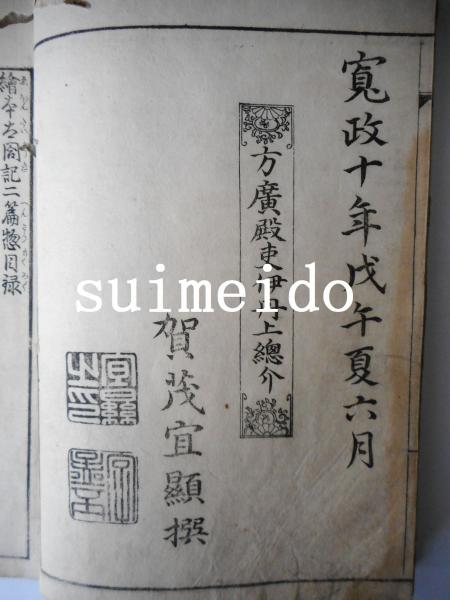 寛政十年戊午夏六月
方廣殿吏伊丹上總介
賀茂宜顯撰
繪本太閤記二篇惣目録
suimeido